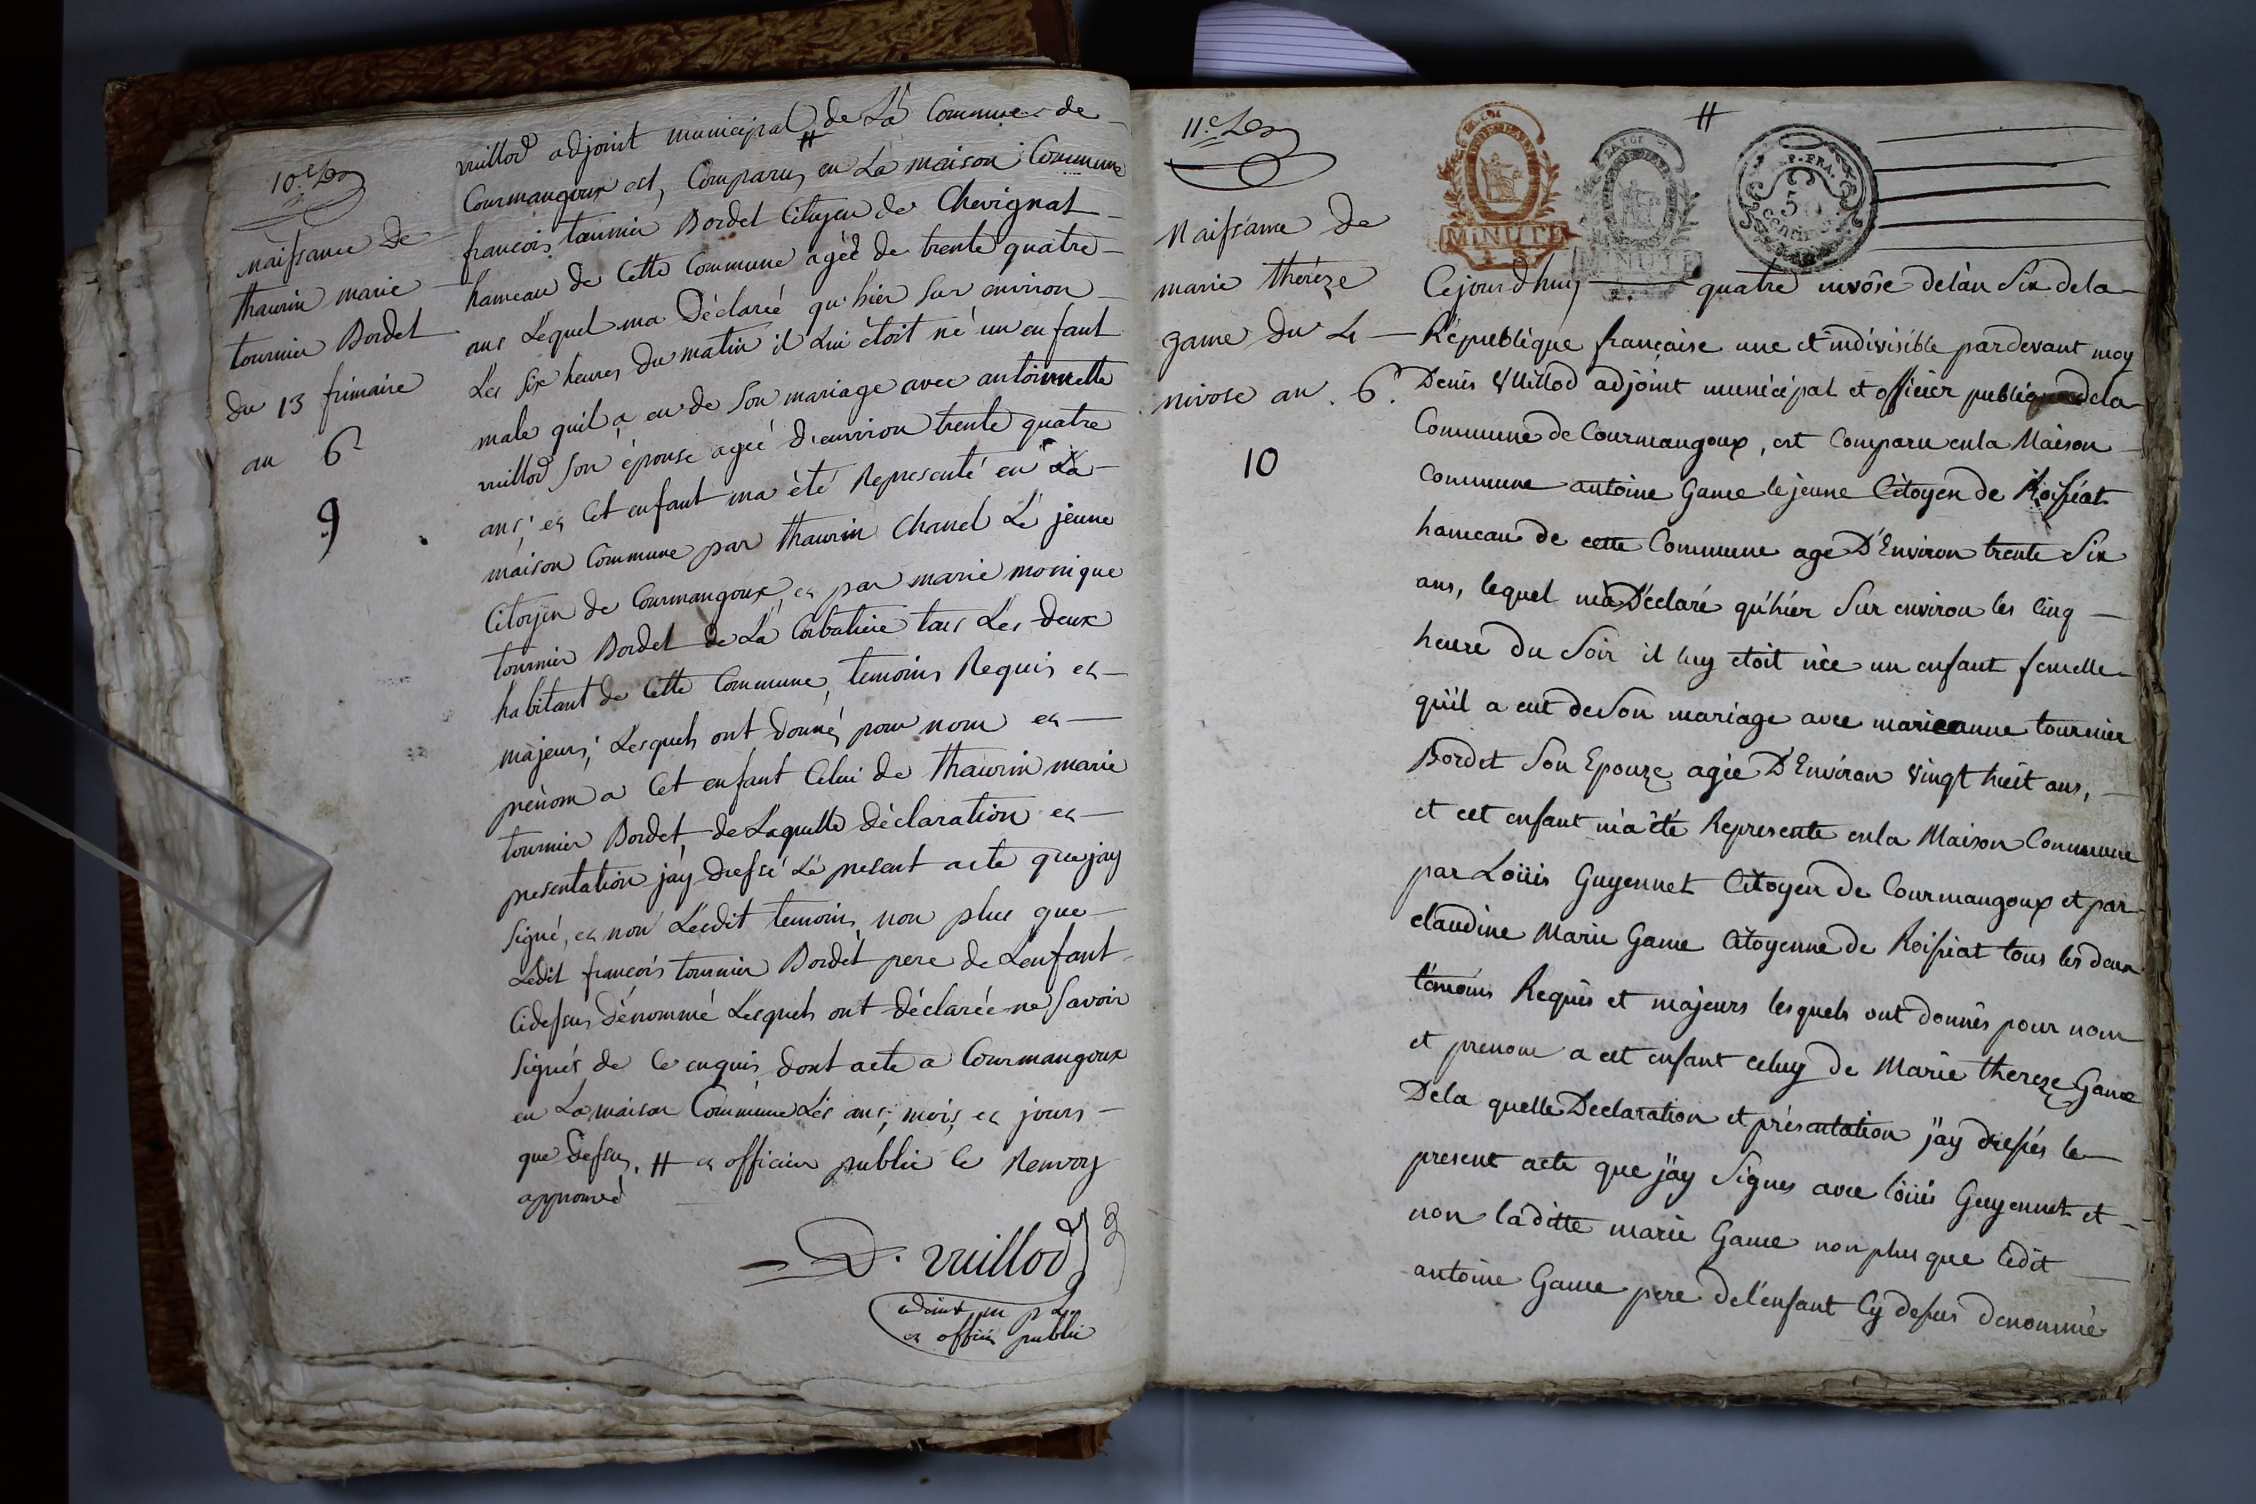 10.e
naissance de
thaurin marie
tournier Bordet
du 13 frimaire
an 6
9
vuillod adjoint municipal # de La Commune de
Courmangoux est, Comparu, en La maison Commune
francois tournier Bordet Citoyen de Chevignat
hameau de Cette Commune agéé de trente quatre
ans Lequel ma Déclaréé qu'hier sur environ
Les six heures du matin il Lui étoit né un enfant
male quil a eu de son mariage avec antoinette
vuillod son épouse agéé d'environ trente quatre
ans; et Cet enfant ma été Representé en La
maison Commune par thaurin Chanel Le jeune
Citoyen de Courmangoux, et par marie monique
tournier Bordet de La Corbatiere tous Les deux
habitant de Cette Commune, temoins Requis et
majeurs; Lesquels ont donné, pour nom et
prénom a Cet enfant Celui de thaurin marie
tournier Bordet, de Laquelle déclaration et
presentation j'ay dressé Le present acte que jay
signé, et non Lesdit temoins, non plus que
Ledit francois tournier Bordet pere de Lenfant
Cidessus dénommé Lesquels ont déclarée ne savoir
signer de Ce enquis dont acte a Courmangoux
en La maison Commune Les ans, mois, et jours
que dessus. # et officier public le Renvoy
approuvé
D. vuillod
et officier public
11.e
Naissance de
marie théreze
game du 4
nivose an . 6.
10
#
MINUTE
MINUTE
Cejourdhuy quatre nivôse de l'an Six de la
République française une et indivisible pardevant moy
Denis Vuillod adjoint municipal et officier publique de la
Commune de Courmangoux, est Comparu en la Maison
commune antoine Game le jeune Citoyen de Roissiat
hameau de cette Commune age D'Environ trente Six
ans, lequel m'a Déclaré qu'hier Sur environ les Cinq
heure du Soir il luy etoit née un enfant femelle
qu'il a eut de Son mariage avec marieanne tournier
Bordet Son Epouze agée D'Environ vingt huit ans,
et cet enfant m'a été Represente en la Maison Commune
par Loüis Guyennet Citoyen de Courmangoux et par
claudine Marie Game Citoyenne de Roissiat tous les deux
témoins Requis et majeurs lesquels ont donnés pour nom
et prenom a cet enfant celuy de Marie thereze Game
De la quelle Declaration et présentation j'ay dressés le
present acte que j'ay Signes avec loüis Guyennet et
non la ditte marie Game non plus que ledit
antoine Game pere de l'enfant Cy dessus denommé